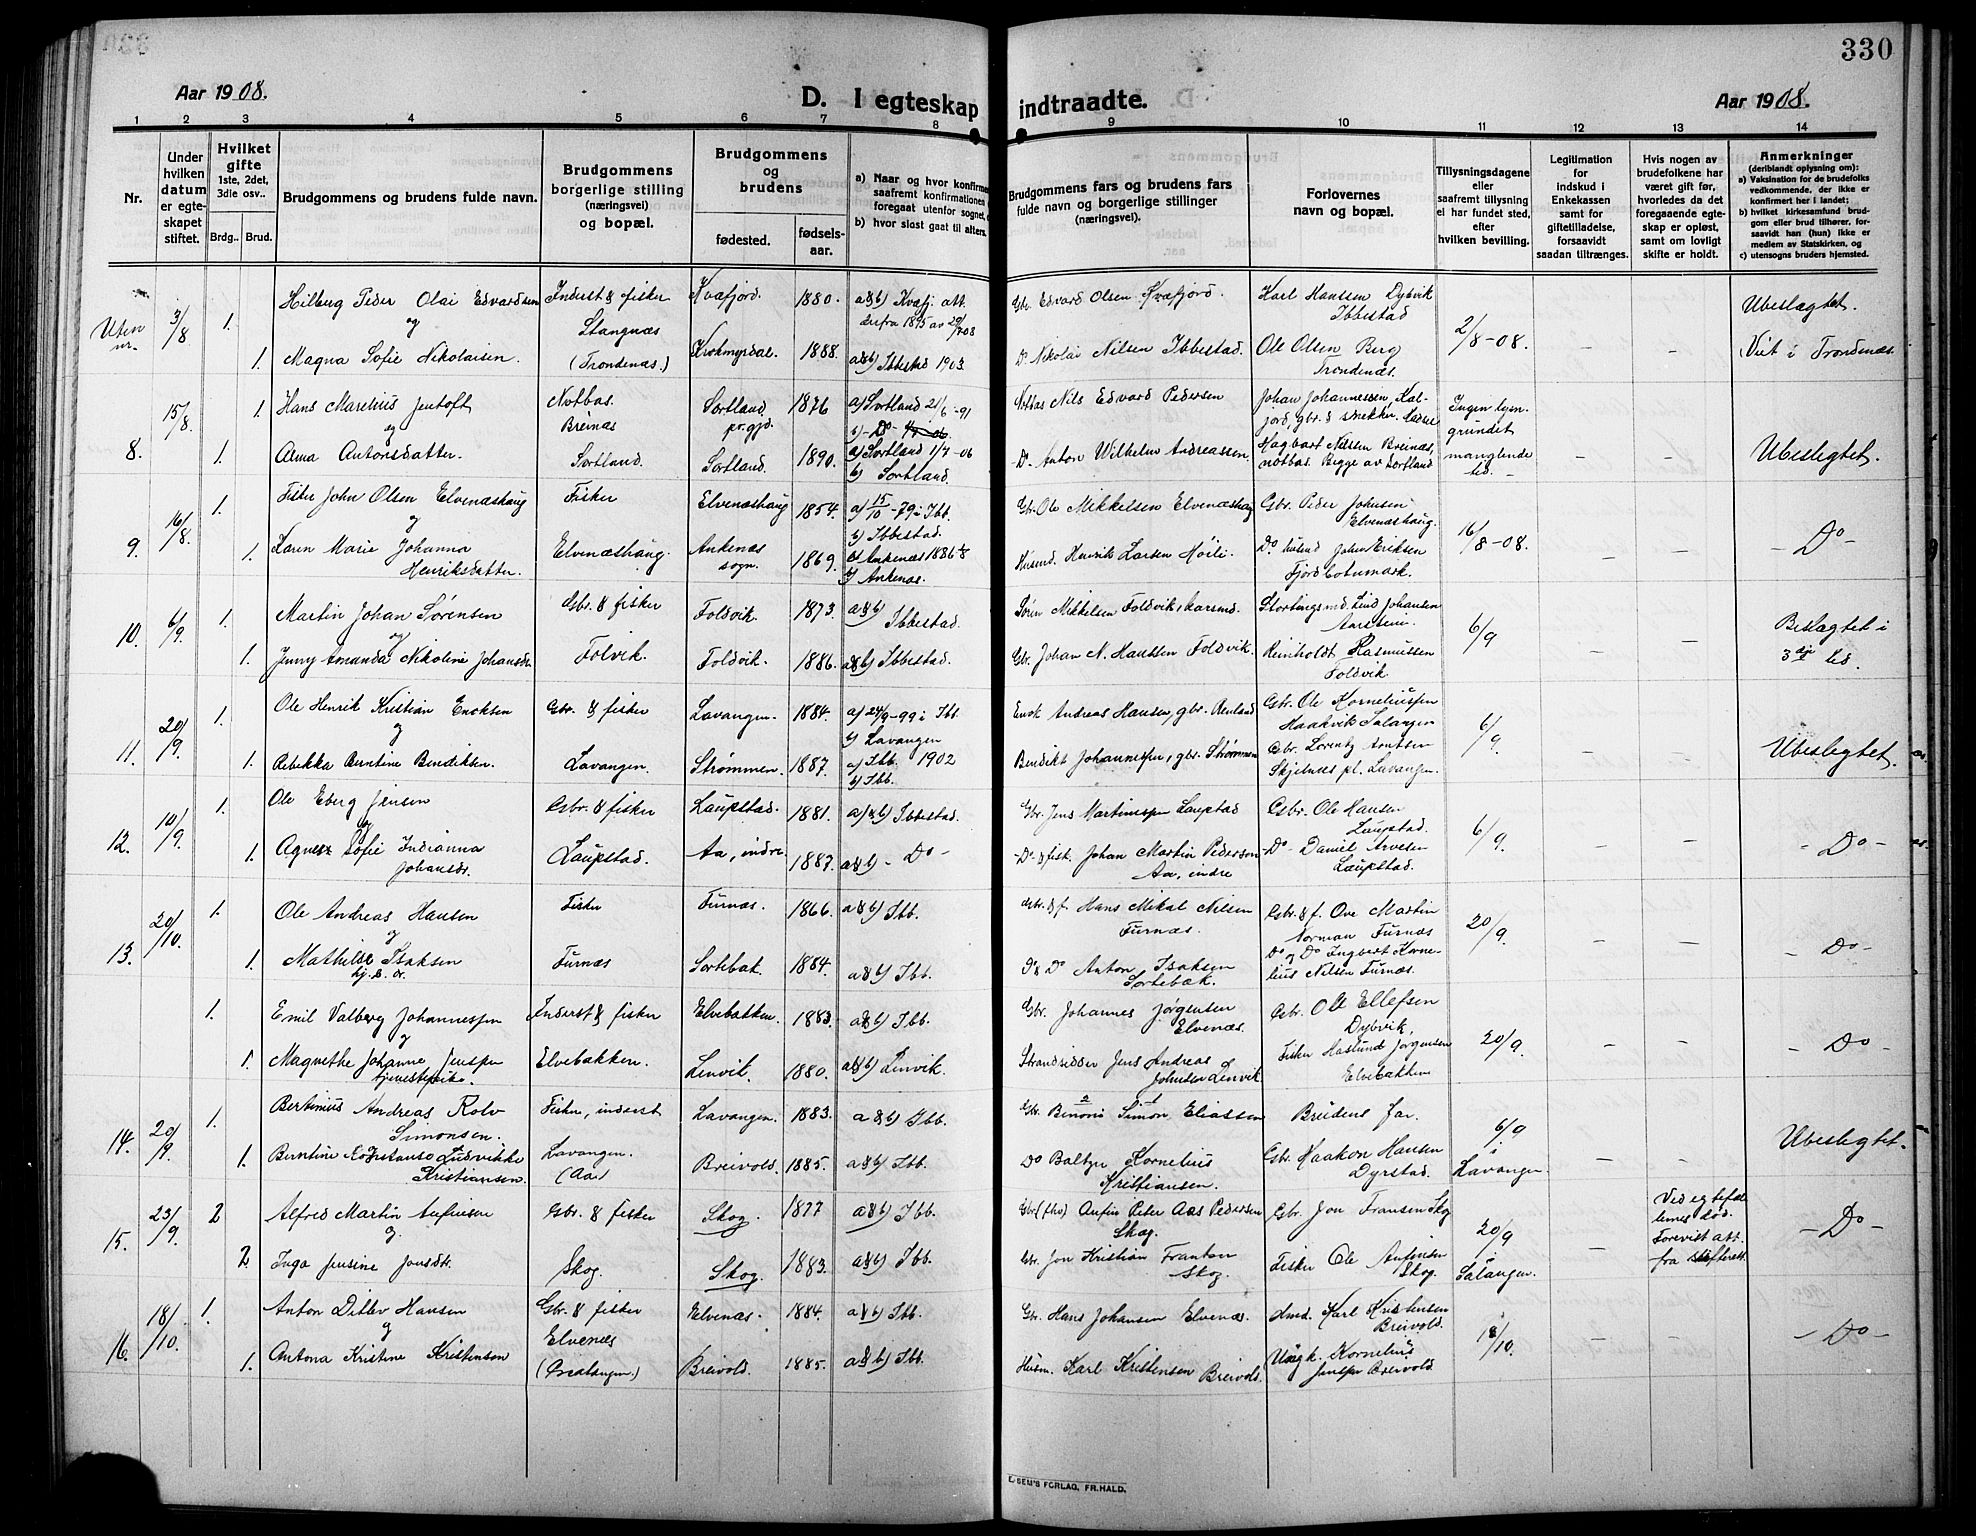 330
Aar 1908.
D. I egteskap indtraadte.
Aar 1908.
1 2 3 4 5 6 7 8 9 10 11 12 13 14
Nr.
Under hvilken datum er egteskapet stiftet.
Hvilket gifte 1ste, 2det, 3die osv..
Brdg.. Brud.
Brudgommens og brudens fulde navn.
Brudgommens borgerlige stilling (næringsvei) og bopæl.
Brudgommens og brudens
fødested.
fødsels-aar.
a) Naar og hvor konfirm
saafremt konfirmationen
foregaat utenfor sognet,
b) hvor sidst gaat til alters.
Brudgommens fars og brudens fars fulde navn og borgerlige stillinger (næringsvei).
Forlovernes navn og bopæl.
Tillysningsdagene eller saafremt tillysning ei har fundet sted, efter hvilken bevilling.
Legitimation for indskud i Enkekassen samt for giftetilladelse, forsaavidt saadan tiltrænges.
Hvis nogen av brudefolkene har været gift før, hvorledes da det foregaaende egteskap er opløst, samt om lovligt skifte er holdt.
Anmerkninger (deriblandt oplysning om): a) Vaksination for de brudefolks vedkommende, der ikke er konfirmert her i landet; b) hvilket kirkesamfund brudgom eller brud tilhører, forsaavidt han (hun) ikke er medlem av Statskirken, og c) utensogns bruders hjemsted.
Uten nr. 3/8 1. Hilberg Peder Olai Edvardsen Inderst & fisker Kvæfjord. 1880. a&b) Kvæfj. att. Gbr. Edvard Olsen Kvæfjord. Karl Hanssen Dybvik Ibbestad 2/8-08. – – Ubeslægtet.
og Stangnæs
1. Magna Sofie Nikolaisen. (Trondenæs.) Krokmyrdal. 1888. a&b) Ibbestad 1903. Do Nikolai Nilsen Ibbestad. Ole Olsen Berg Trondenæs. Viet i Trondenæs.
8. 15/8 1. Hans Marelius Jentoft Notbas. Breinæs Sortland pr. gjd. 1876 a) Sortland 21/6-91 Notbas Nils Edvard Pedersen Johan Johannessen, Kaljord, gbr. & snekker. Ingen lysn. grundet manglende tid. – – – Ubeslegtet.
og
1. Alma Antonsdatter. Sortland. Sortland. 1890. a) Sortland 1/7-06 b) Sortland. Do. Anton Wilhelm Andreassen Hagbart Nilssen Breinæs, notbas. Begge av Sortland
9. 16/8 1. Fisker John Olsen Elvenæshaug Fisker Elvenæshaug 1854. a) 15/10-79 i Ibb. b) Ibbestad. Gbr. Ole Mikkelsen Elvenæshaug Gbr. Peder Johnsen Elvenæshaug. 16/8-08. – – – Do –
og
1. Karen Marie Johanna Henriksdatter. Elvenæshaug. Ankenæs sogn. 1869. a) Ankenæs 1886 b) Ankenæs. Husmd. Henrik Larsen Do. husmd John Eriksen Fjordbotnmark.
10. 6/9. 1. Martin Johan Sørensen Gbr. & fisker Foldvik. 1873. a&b) Ibbestad. Søren Mikkelsen Foldvik Stortingsmd. Lind Johansen 6/9 – – Beslægtet i 3die led.
og
1. Jenny Amanda Nikoline Johansdr. Folvik. Foldvik. 1886. a&b) Ibbestad. Gbr. Johan N. Hanssen Foldvik. Reinholdt Rasmussen Foldvik
11. 20/9. 1. Ole Henrik Kristian Enoksen Gbr. & fisker Lavangen. 1884. a) 24/9-99 i Ibb. b) Lavangen Enok Andreas Hansen, gbr. Gbr. Ole Korneliussen Haakvik Salangen 6/9. – – Ubeslegtet.
og
1. Rebekka Berntine Bendiksen. Lavangen. Strømmen. 1887. a) Ibb. 1902 b) Ibb. Bendikt Johannessen, gbr. Strømmen Gbr. Lorentz Arntsen Skjelnes pl. Lavangen.
12. 10/9. 1. Ole Eberg Jensen Gbr. & fisker Laupstad. 1881. a&b) Ibbestad. Gbr. Jens Martinussen Laupstad Gbr. Ole Hansen Laupstad. 6/9. – – – Do –
og
1. Agnes Sofie Indianna Johansdr. Laupstad. Aa, indre. 1887. a&b) – Do – Do & fisk. Johan Martin Pedersen Aa, indre Do – Daniel Arvesen Laupstad.
13. 20/10. 1. Ole Andreas Hansen Fisker Furnæs. 1866. a&b) Ibb. Gbr. & f. Hans Mikal Nilsen Furnæs. Gbr. & f. Ove Martin Norman Furnæs 20/9. – – – Do –
og
1. Mathilde Isaksen Furnæs Sortebak. 1884. a&b) Ibb. Do Anton Isaksen Sortebæk. Do og Do Ingbert Kornelius Nilsen Furnæs.
1. Emil Valberg Johannessen Inderst & fisker Elvebakken. 1883. a&b) Ibb. Gbr. Johannes Jørgensen Elvenæs. Gbr. Ole Ellefsen Dybvik, 20/9. – – – Do –
og
1. Magnethe Johanne Jenssen tjenestepike. Elvebakken. Lenvik. 1880. a&b) Lenvik. Strandsidder Jens Andreas Johnsen Lenvik. Fisker Haslund Jørgensen Elvebakken
14. 20/9. 1. Bertinius Andreas Rolv Simonsen. Fisker, inderst Lavangen. 1883. a&b) Ibb. Gbr. Benoni Simon Eliassen Brudens far. 6/9 i Lavangen – – Ubeslegtet.
1. Berntine Kristiansen Lavangen. (Aa) Breivold. 1885. a&b) Ibb. Do Baltzer Kornelius Kristiansen. Gbr. Haakon Hansen Dyrstad.
15. 23/9. 2 Alfred Martin Anfinsen Gbr. & fisker Skog. 1877 a&b) Ibb. Gbr. Anfin Peter Aas Pedersen Skog. Gbr. Jon Fransen Skog 20/9 i Salangen. – Ved egtefællernes død. Forevist att. fra skifterett. – Do –
og
2 Inga Jensine Jonsdtr. Skog. Skog. 1883. a&b) Ibb. Gbr. Jon Kristian Frantsen Skog. Fisker Ole Anfinsen Skog.
16. 18/10. 1. Anton Ditlev Hansen Gbr. & fisker Elvenæs. 1884. a&b) Ibb. Gbr. Hans Johansen Elvenæs. Karl Kristensen Breivold. 18/10. – – – Do –
og Elvenæs
1. Antona Kristine Kristensen (Gratangen.) Breivold. 1885. a&b) Ibb. Husm. Karl Kristensen Breivold. Ungk. Kornelius Jenssen Breivold
E. SEM'S FORLAG, FR.HALD.